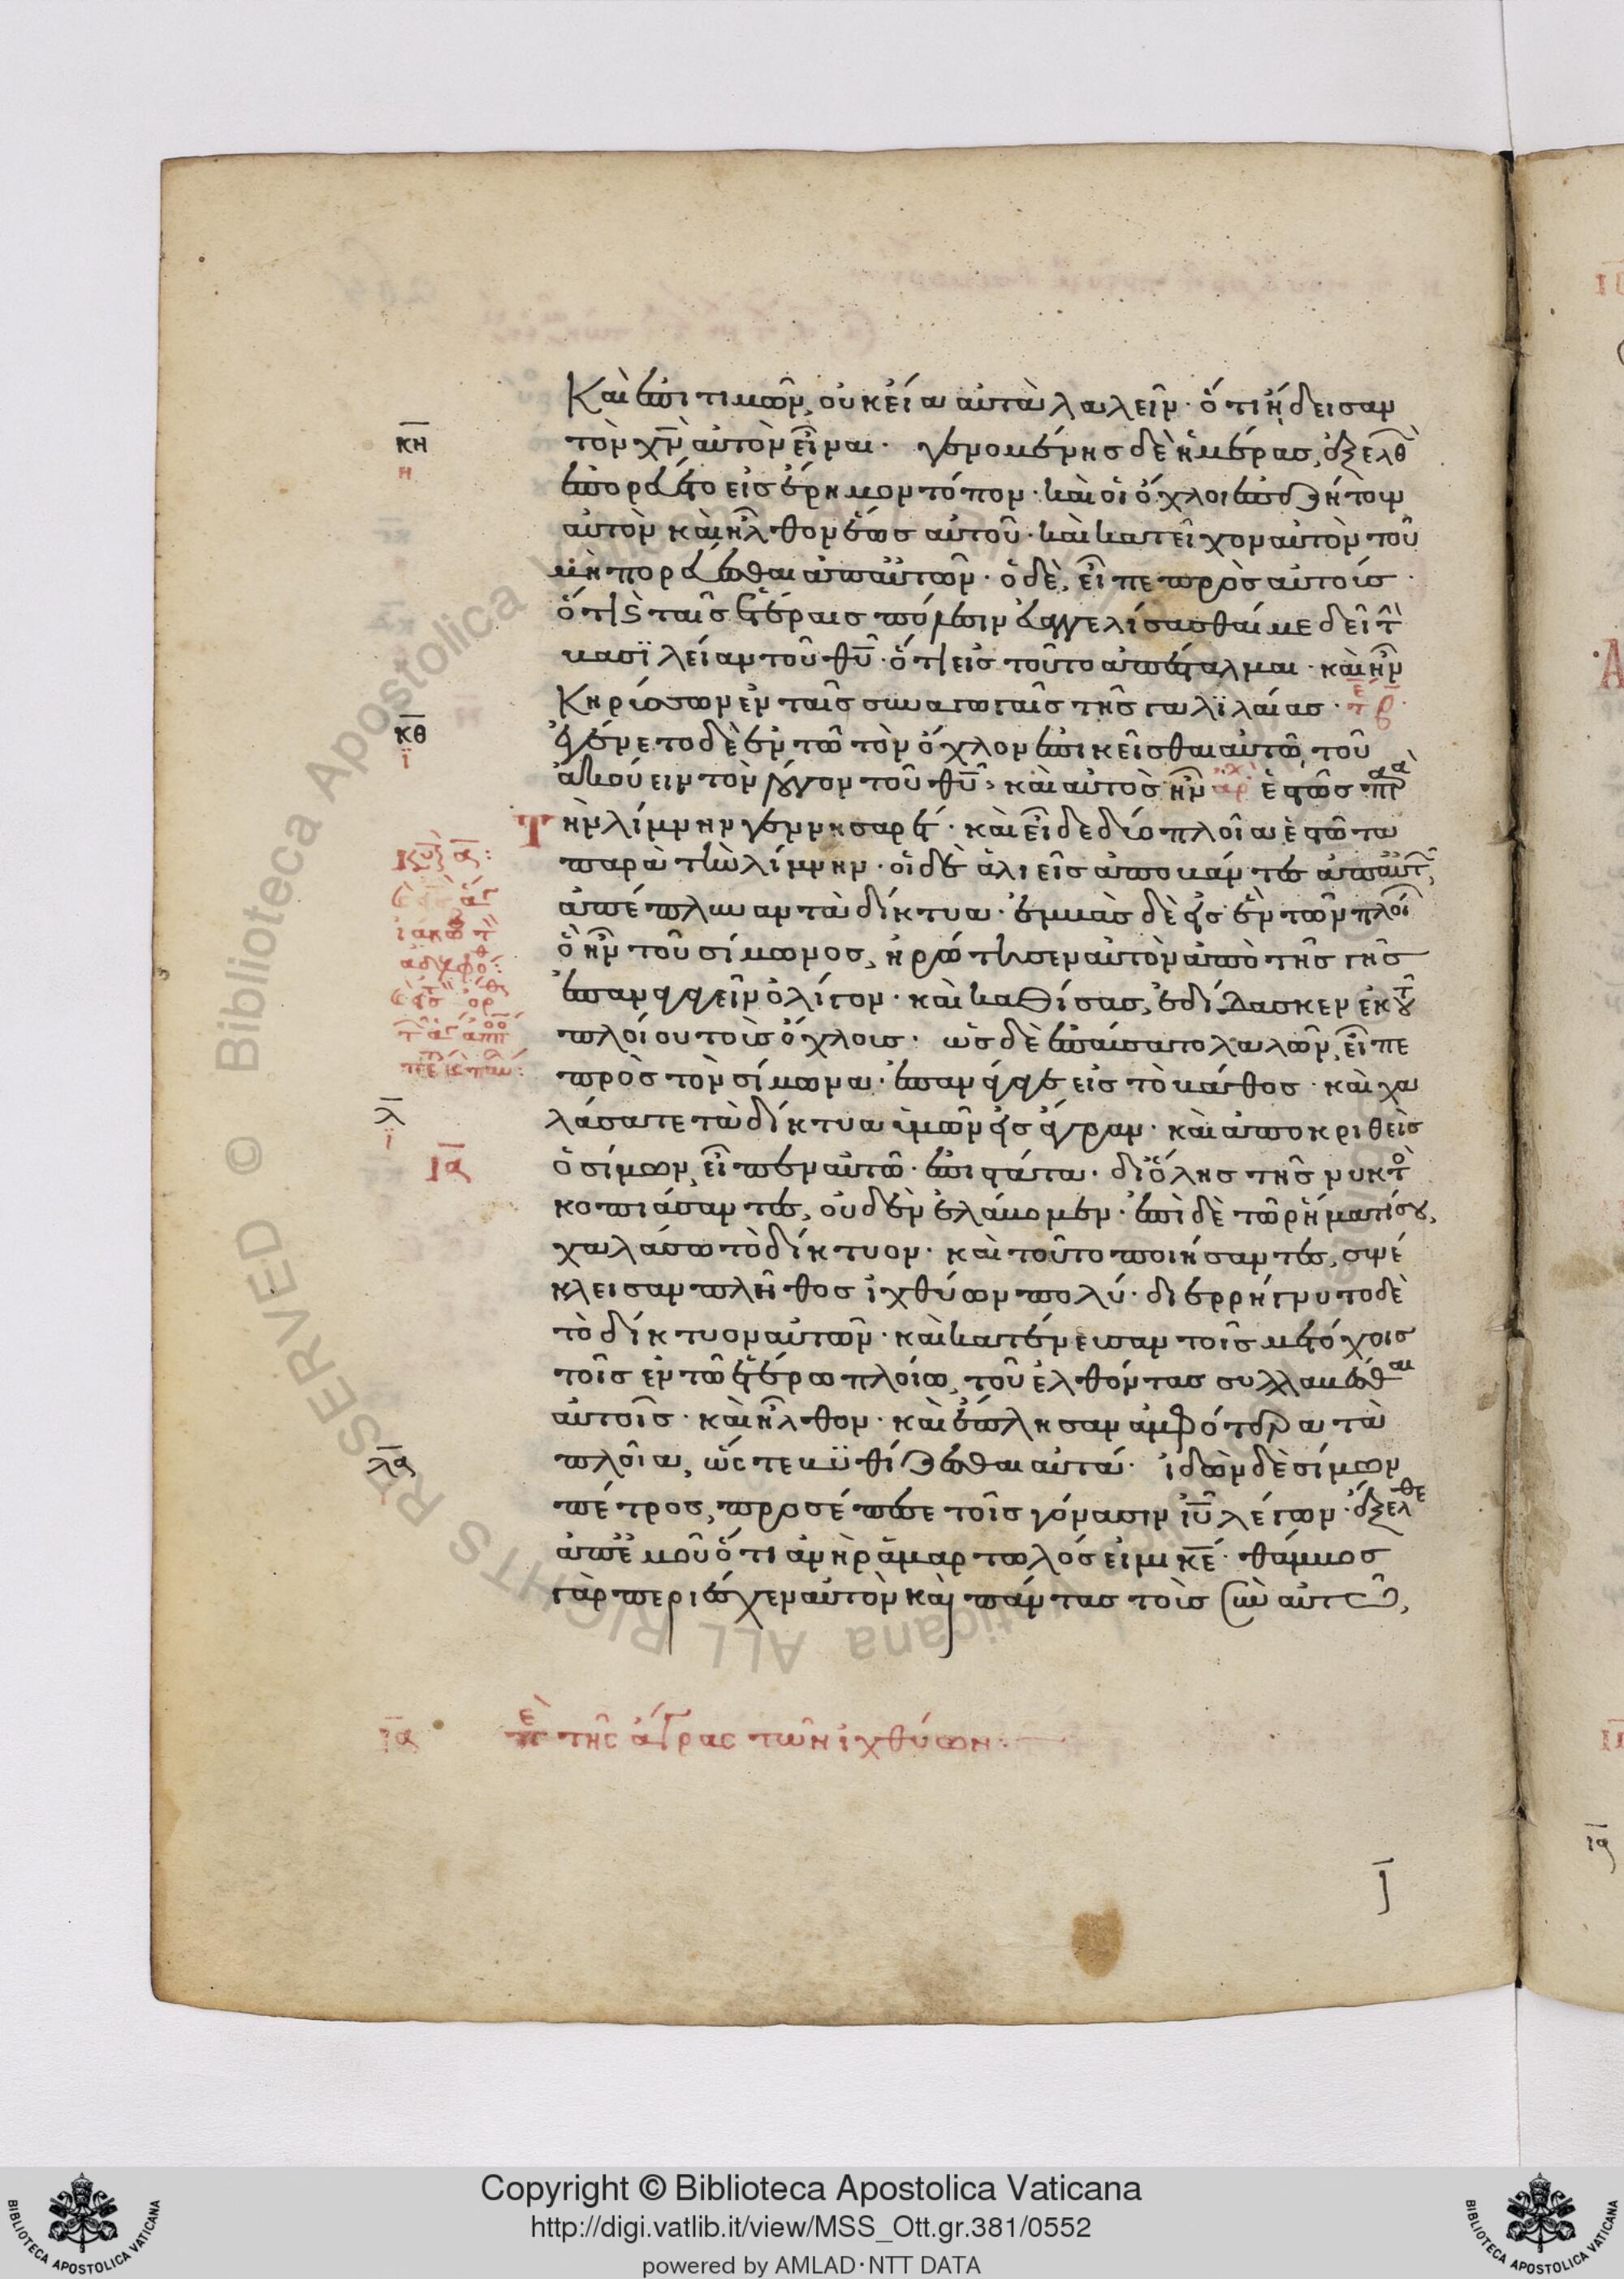 Καὶ ἐπιτιμῶν, οὐκ εἴα αὐτὰ λαλεῖν· ὅτι ᾔδεισαν
κη τὸν χν αὐτὸν εἶναι· γενομένης δὲ ἡμέρας, ἐξελθ
η
ἐπορεύετο εἰς ἔρημον τόπον· καὶ οἱ ὄχλοι ἐπεζήτουν
αὐτὸν καὶ ἦλθον ἕως αὐτοῦ· καὶ κατεῖχον αὐτὸν τοῦ
μὴ πορεύεσθαι ἀπ αὐτῶν· ὁ δὲ, εἶπε πρὸς αὐτοὺς·
ὅτι καὶ ταῖς ἑτέραις πόλεσιν εὐαγγελίσασθαί με δεῖ τ
βασϊλείαν τοῦ θυ· ὅτι εἰς τοῦτο ἀπέσταλμαι· καὶ ἦν
Κηρύσσων ἐν ταῖς συναγωγαῖς τῆς γαλϊλαίας·
κθ ἐγένετο δὲ ἐν τῶ τὸν ὄχλον ἐπικεῖσθαι αὐτῶ, τοῦ
ϊ
ἀκούειν τὸν λόγον τοῦ θυ, καὶ αὐτὸς ἦν ἀρχ ἑστῶς παρὰ
Τὴν λίμνην γεννησαρέτ· καὶ εἶδε δύο πλοῖα ἑστῶτα
παρὰ τὴν λίμνην· οἱ δὲ ἁλιεῖς ἀποβάντες ἀπ αὐτ,
ἀπέπλυναν τὰ δίκτυα· ἐμβὰς δὲ εἰς ἓν τῶν πλοί
ὃ ἦν τοῦ σίμωνος, ἠρώτησεν αὐτὸν ἀπὸ τῆς γῆς
ἐπαναγαγεῖν ὀλίγον· καὶ καθίσας, ἐδίδασκεν ἐκ τοῦ
πλοίου τοὺς ὄχλους· ὡς δὲ ἐπαύσατο λαλῶν, εἶπε
πρὸς τὸν σίμωνα· ἐπανάγαγε εἰς τὸ βάθος· καὶ χα
λ
ϊ
λάσατε τὰ δίκτυα ὑμῶν εἰς ἄγραν· καὶ ἀποκριθεὶς
ια ὁ σίμων, εἶπεν αὐτῶ· ἐπιστάτα· δι ὅλης τῆς νυκτὸ
κοπιάσαντες, οὐδὲν ἐλάβομεν· ἐπὶ δὲ τῶ ῥήματί σου,
χαλάσω τὸ δίκτυον· καὶ τοῦτο ποιήσαντες, συνέ
κλεισαν πλῆθος ἰχθύων πολύ· διερρήγνυτο δὲ
τὸ δίκτυον αὐτῶν· καὶ κατένευσαν τοῖς μετόχοις
τοῖς ἐν τῶ ἑτέρω πλοίω, τοῦ ἐλθόντας συλλαβέσθαι
αὐτοῖς· καὶ ἦλθον· καὶ ἔπλησαν ἀμφότερα τὰ
λα πλοῖα, ὥστε βυθίζεσθαι αὐτά· ἰδὼν δὲ σίμων
πέτρος, προσέπεσε τοῖς γόνασιν ιυ λέγων· ἔξελθε
ἀπ ἐμοῦ ὅτι ἀνὴρ ἁμαρτωλός εἰμι κε· θάμβος
γὰρ περιέσχεν αὐτὸν καὶ πάντας τοὺς σὺν αὐτῶ,
ια πε τῆς ἄγρας τῶν ἰχθύων:
Copyright © Biblioteca Apostolica Vaticana
http://digi.vatlib.it/view/MSS_Ott.gr.381/0552
powered by AMLAD·NTT DATA
© Biblioteca Apostolica Vaticana ALL RIGHTS RESERVED
BIBLIOTECA APOSTOLICA VATICANA
BIBLIOTECA APOSTOLICA VATICANA